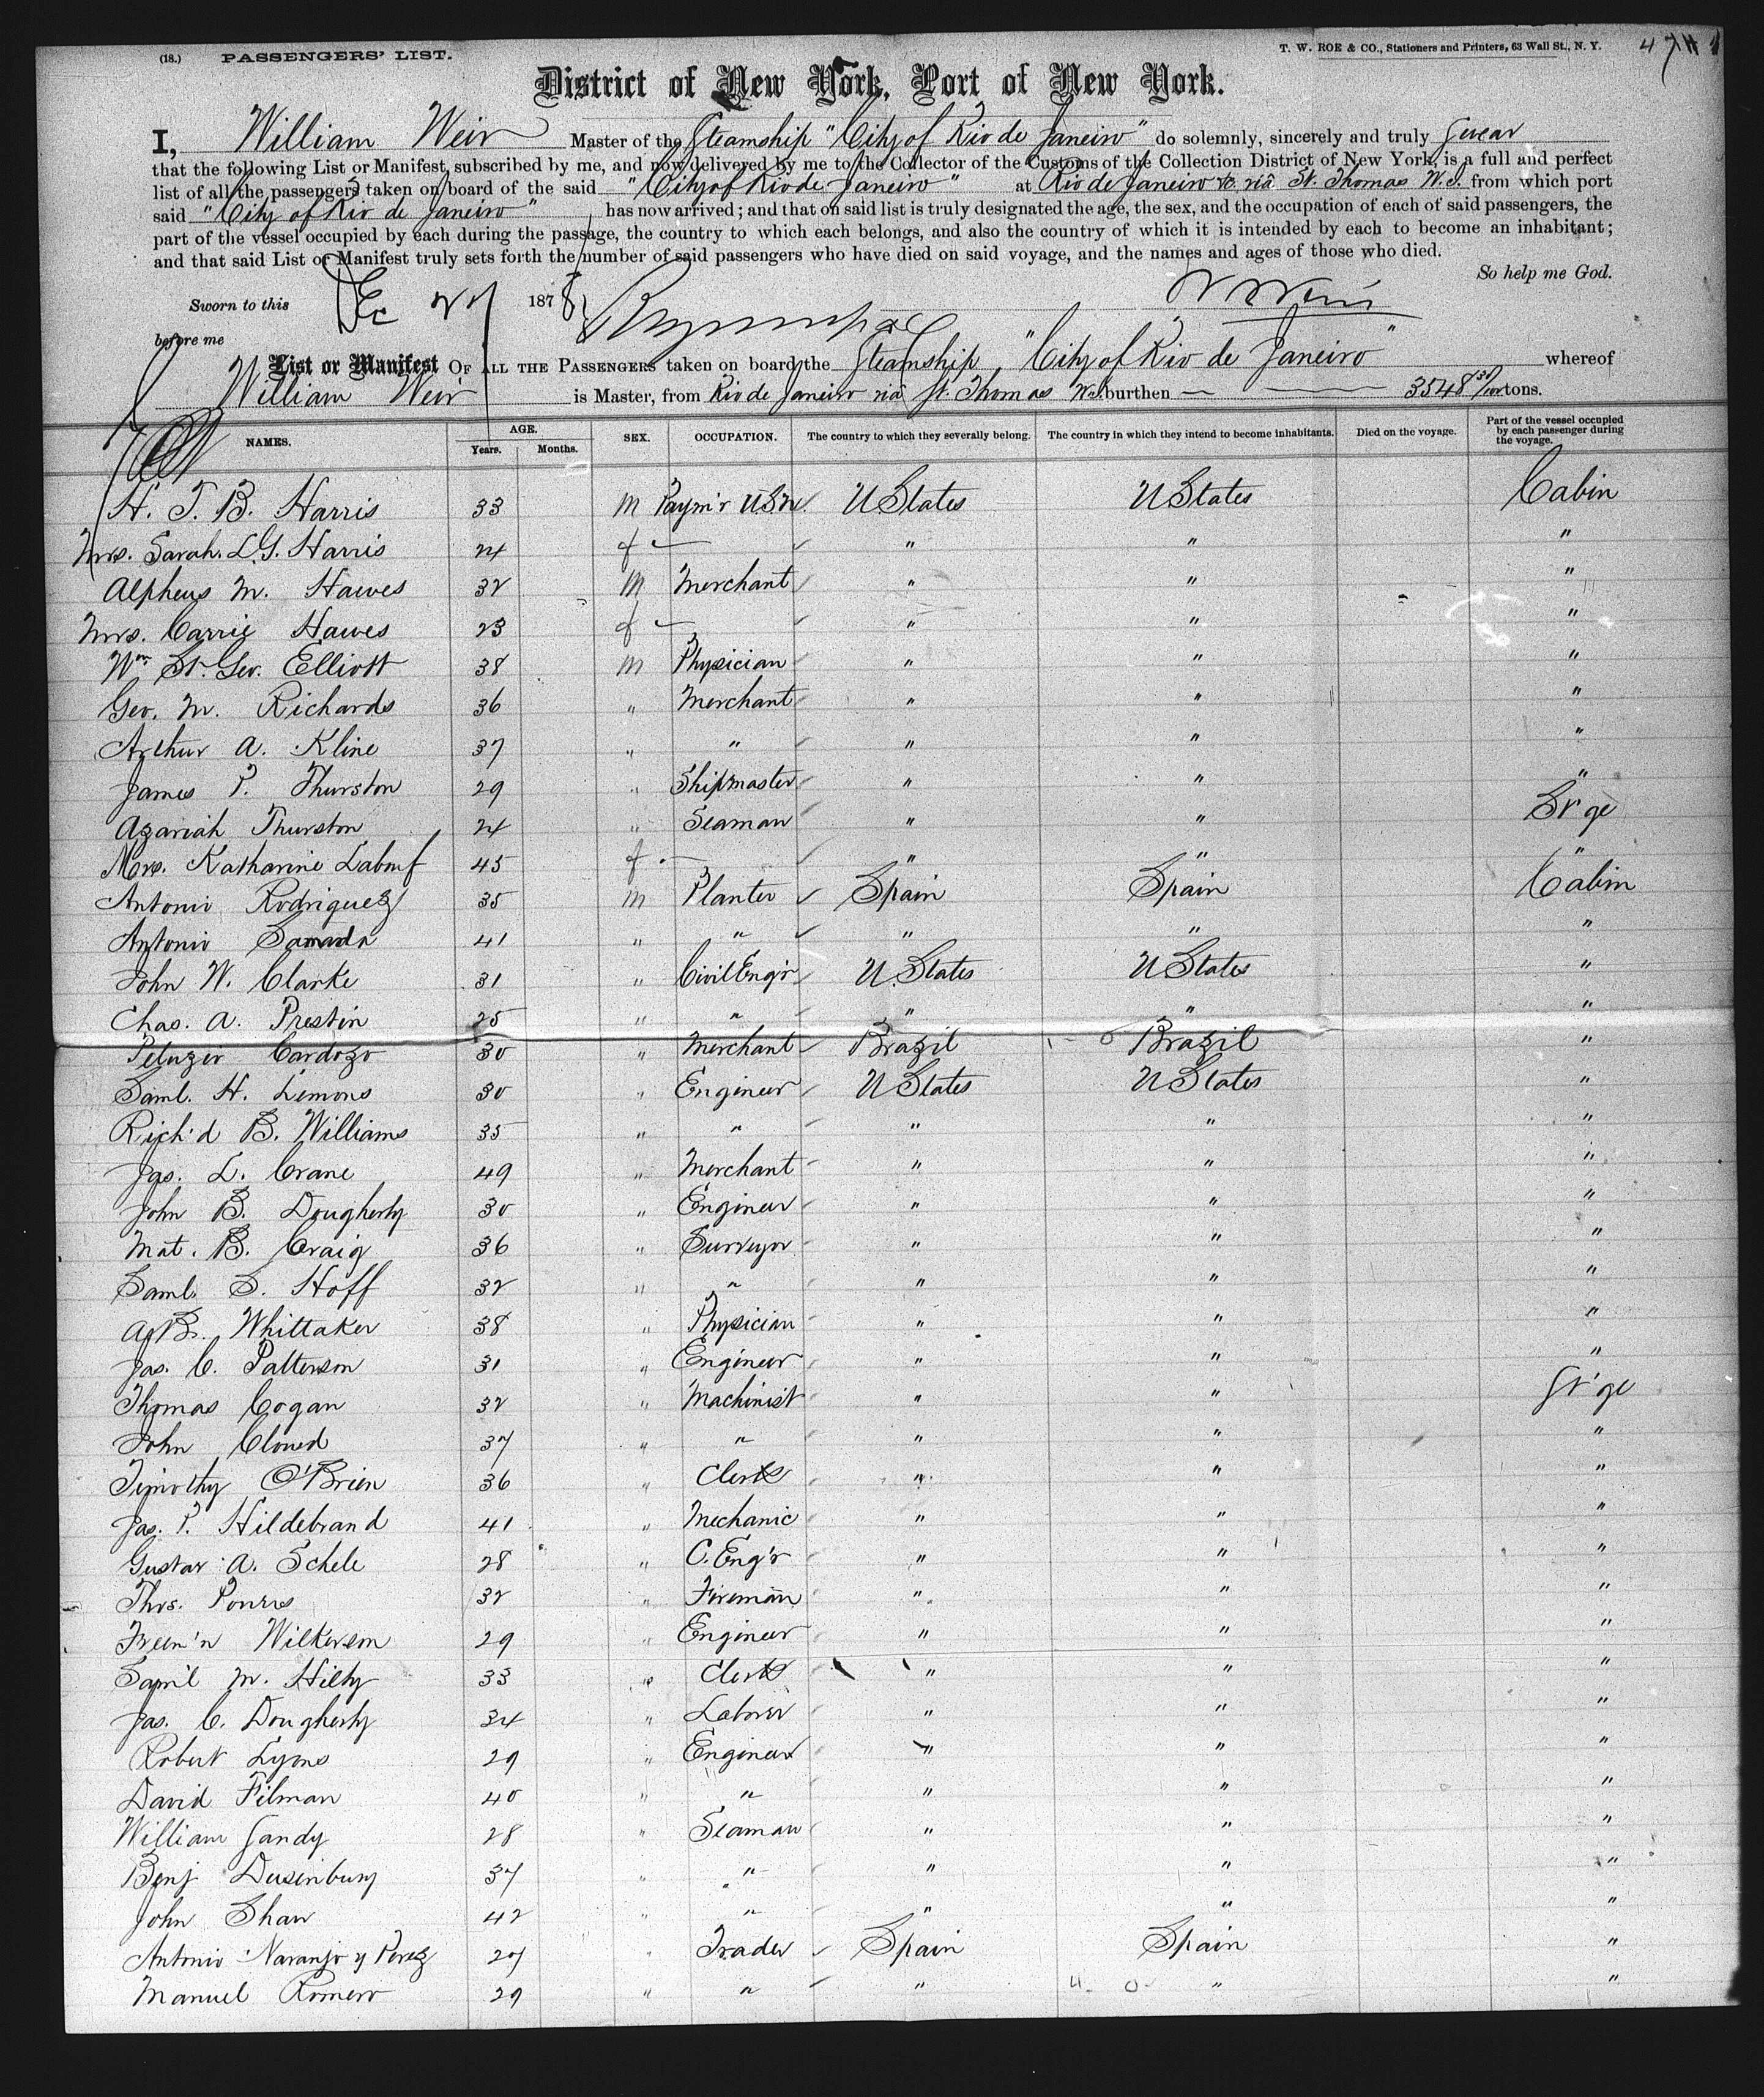 (18.) PASSENGERS' LIST. T. W. ROE & CO., Stationers and Printers, 63 Wall St., N. Y.
District of New York, Port of New York.
I, William Weir Master of the Steamship "City of Rio de Janeiro" do solemnly, sincerely and truly swear
that the following List or Manifest, subscribed by me, and now delivered by me to the Collector of the Customs of the Collection District of New York, is a full and perfect
list of all the passengers taken on board of the said "City of Rio de Janeiro" at Rio de Janeiro &c via St. Thomas W.I. from which port
said "City of Rio de Janeiro" has now arrived; and that on said list is truly designated the age, the sex, and the occupation of each of said passengers, the
part of the vessel occupied by each during the passage, the country to which each belongs, and also the country of which it is intended by each to become an inhabitant;
and that said List or Manifest truly sets forth the number of said passengers who have died on said voyage, and the names and ages of those who died.
So help me God.
Sworn to this Dec 27 1878 W Weir
before me
List or Manifest OF ALL THE PASSENGERS taken on board the Steamship "City of Rio de Janeiro" whereof
William Weir is Master, from Rio de Janeiro via St. Thomas W.I. burthen — 3548 tons.
NAMES. AGE. Years. Months. SEX. OCCUPATION. The country to which they severally belong. The country in which they intend to become inhabitants. Died on the voyage. Part of the vessel occupied by each passenger during the voyage.
H. T. B. Harris 33 M Paym'r U.S.N. U States U States Cabin
Mrs. Sarah L.G. Harris 24 f — " " "
Alpheus M. Hawes 32 M Merchant " " "
Mrs. Carrie Hawes 23 f — " " "
Wm St. Geo. Elliott 38 M Physician " " "
Geo. M. Richards 36 " Merchant " " "
Arthur A. Kline 37 " " " " "
James P. Thurston 29 " Shipmaster " " "
Azariah Thurston 24 " Seaman " " St'ge
Mrs. Katharine 45 f — " " "
Antonio Rodriguez 35 M Planter Spain Spain Cabin
Antonio 41 " " " " "
John W. Clarke 31 " Civil Eng'r U. States U States "
Chas. A. Prestin 25 " " " " "
Cardozo 30 " Merchant Brazil Brazil "
Saml. H. Lemons 30 " Engineer U States U States "
Rich'd B. Williams 35 " " " " "
Jas. L. Crane 49 " Merchant " " "
John B. Dougherty 30 " Engineer " " "
Mat. B. Craig 36 " Surveyor " " "
Saml. S. Hoff 32 " " " " "
A.B. Whittaker 38 " Physician " " "
Jas. C. Patterson 31 " Engineer " " "
Thomas Cogan 32 " Machinist " " St'ge
John Cloud 37 " " " " "
Timothy O'Brien 36 " Clerk " " "
Jas. P. Hildebrand 41 " Mechanic " " "
Gustav A. Schele 28 " C. Eng'r " " "
Thos. Powers 32 " Fireman " " "
Freem'n Wilkerson 29 " Engineer " " "
Sam'l M. Hilty 33 " Clerk " " "
Jas. C. Dougherty 34 " Laborer " " "
Robert Lyons 29 " Engineer " " "
David Filman 40 " " " " "
William Gandy 28 " Seaman " " "
Benj Dusinbury 37 " " " " "
John Shaw 42 " " " " "
Antonio Naranjo y Perez 27 " Trader Spain Spain "
Manuel Romero 29 " " " " "